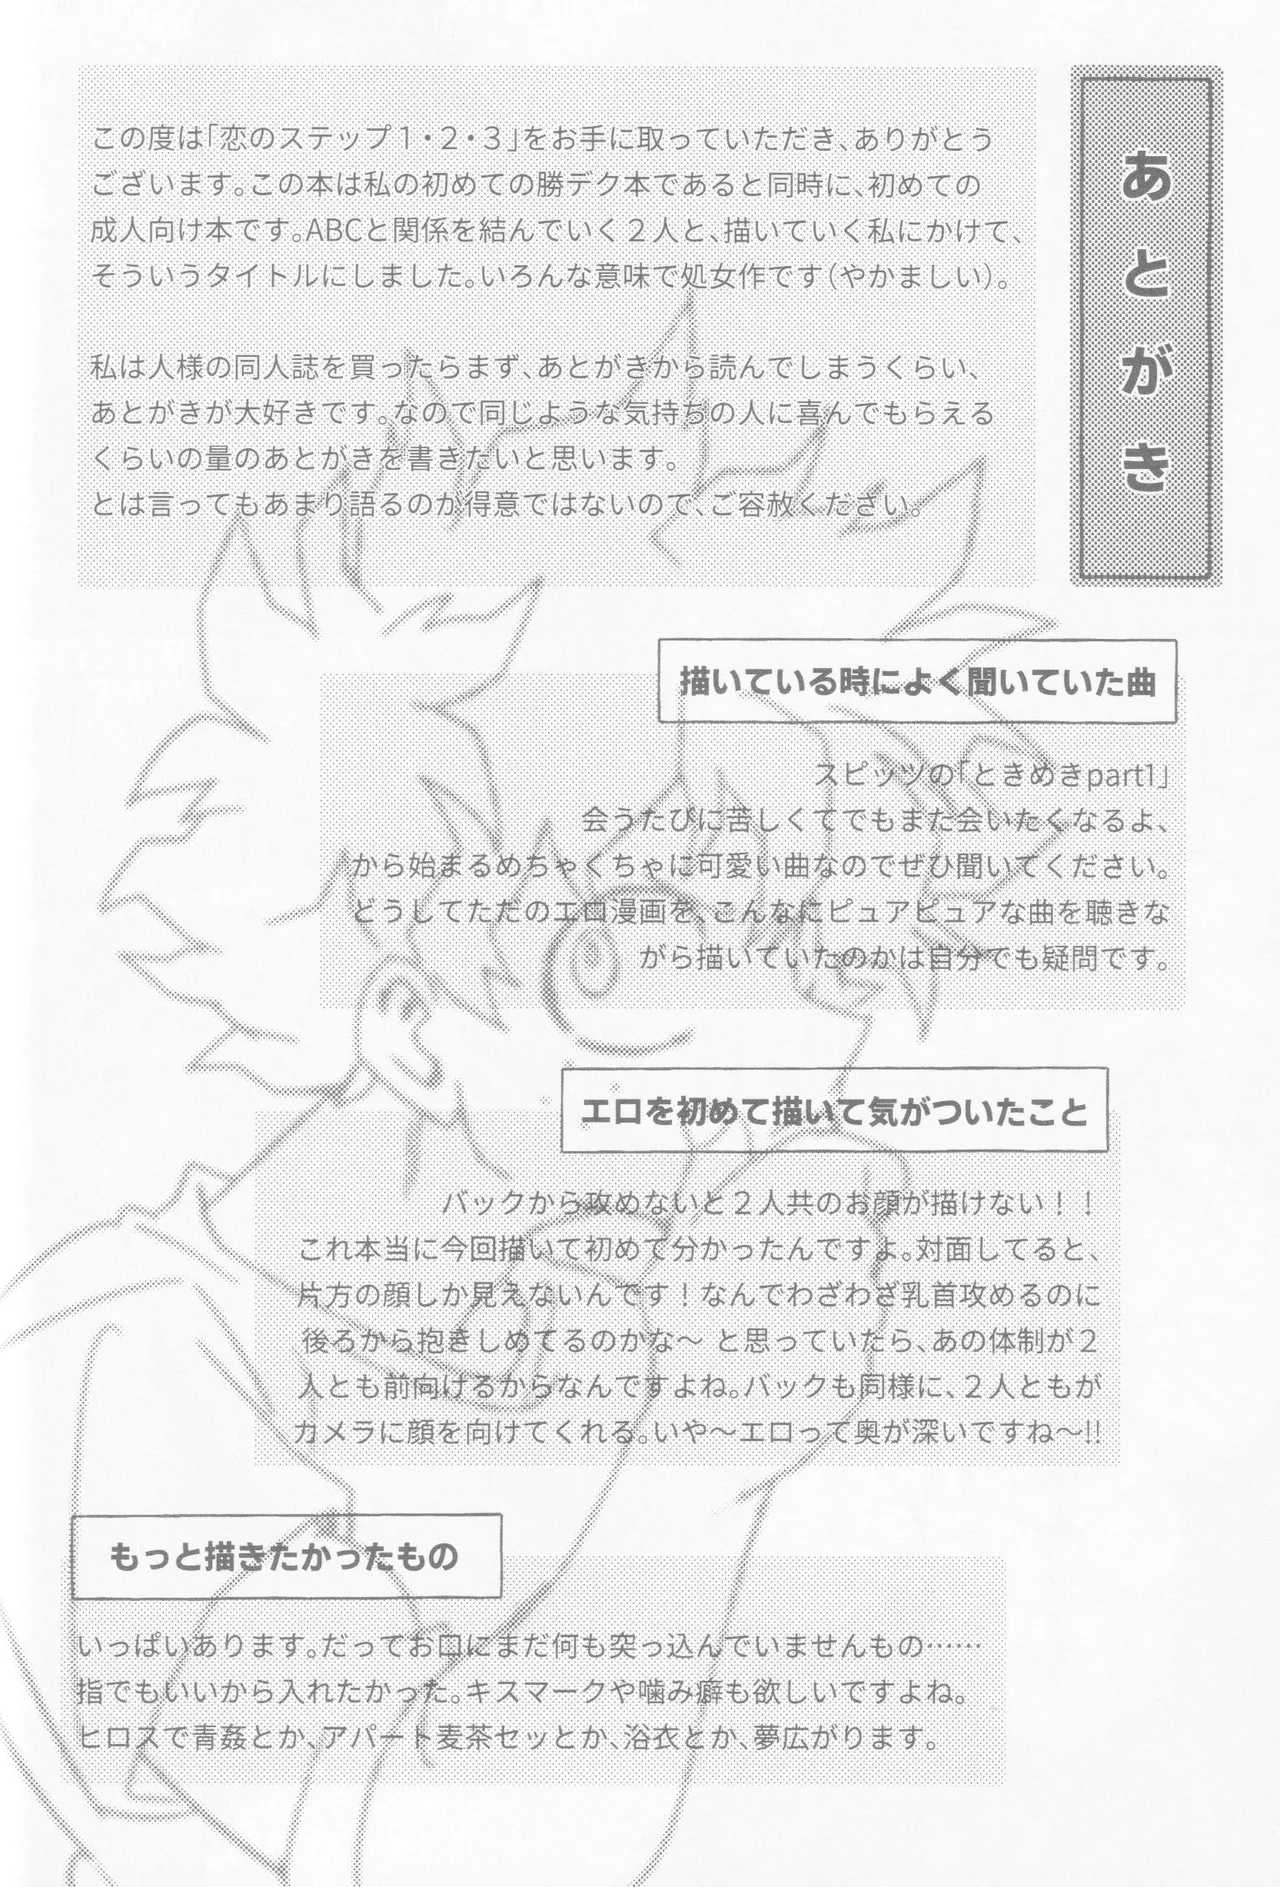 あとがき
この度は「恋のステップ１・２・３」をお手に取っていただき、ありがとう
ございます。この本は私の初めての勝デク本であると同時に、初めての
成人向け本です。ABCと関係を結んでいく２人と、描いていく私にかけて、
そういうタイトルにしました。いろんな意味で処女作です（やかましい）。
私は人様の同人誌を買ったらまず、あとがきから読んでしまうくらい、
あとがきが大好きです。なので同じような気持ちの人に喜んでもらえる
くらいの量のあとがきを書きたいと思います。
とは言ってもあまり語るのが得意ではないので、ご容赦ください。
描いている時によく聞いていた曲
スピッツの「ときめきpart1」
会うたびに苦しくてでもまた会いたくなるよ、
から始まるめちゃくちゃに可愛い曲なのでぜひ聞いてください。
どうしてただのエロ漫画を、こんなにピュアピュアな曲を聴きな
がら描いていたのかは自分でも疑問です。
エロを初めて描いて気がついたこと
バックから攻めないと２人共のお顔が描けない！！
これ本当に今回描いて初めて分かったんですよ。対面してると、
片方の顔しか見えないんです！なんでわざわざ乳首攻めるのに
後ろから抱きしめてるのかな〜 と思っていたら、あの体制が２
人とも前向けるからなんですよね。バックも同様に、２人ともが
カメラに顔を向けてくれる。いや〜エロって奥が深いですね〜!!
もっと描きたかったもの
いっぱいあります。だってお口にまだ何も突っ込んでいませんもの……
指でもいいから入れたかった。キスマークや噛み癖も欲しいですよね。
ヒロスで青姦とか、アパート麦茶セッとか、浴衣とか、夢広がります。